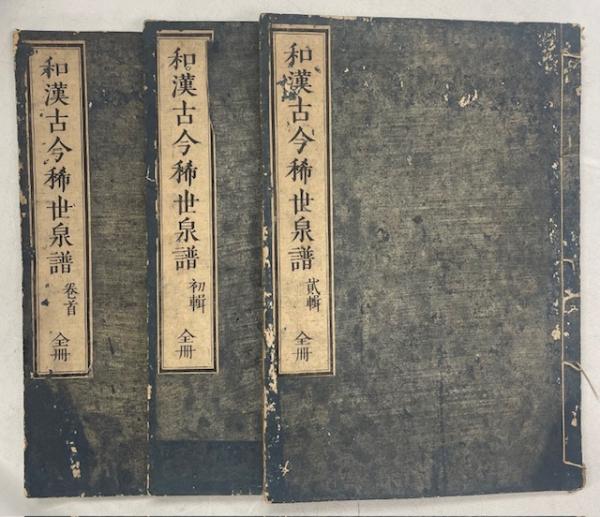 和漢古今稀世泉譜 卷首 全冊
和漢古今稀世泉譜 初輯 全冊
和漢古今稀世泉譜 貳輯 全冊